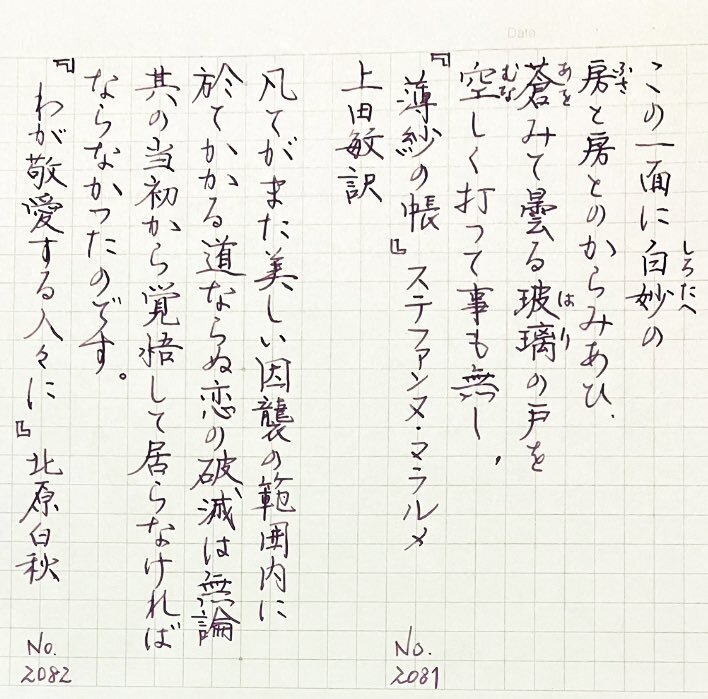 Date
この一面に白妙の
しろたへ
房と房とのからみあひ、
ふさ
蒼みて曇る玻璃の戸を
あを
はり
空しく打つて事も無し、
むな
『薄紗の帳』ステファンヌ・マラルメ
上田敏訳
No.
2081
凡てがまた美しい因襲の範囲内に
於てかかる道ならぬ恋の破滅は無論
其の当初から覚悟して居らなければ
ならなかつたのです。
『わが敬愛する人々に』北原白秋
No.
2082